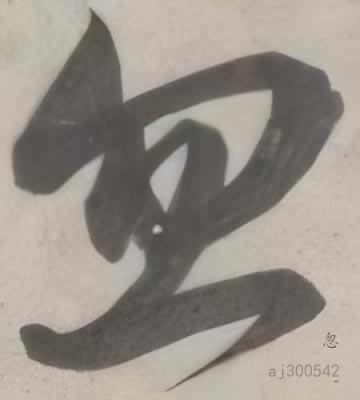 忽
忽
aj300542